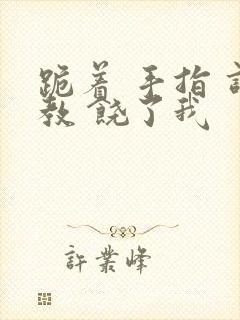 跪着 手指 
教 饶了我
許業峰